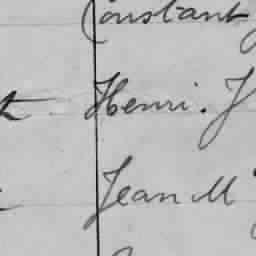 Constant
Henri. J
Jean M